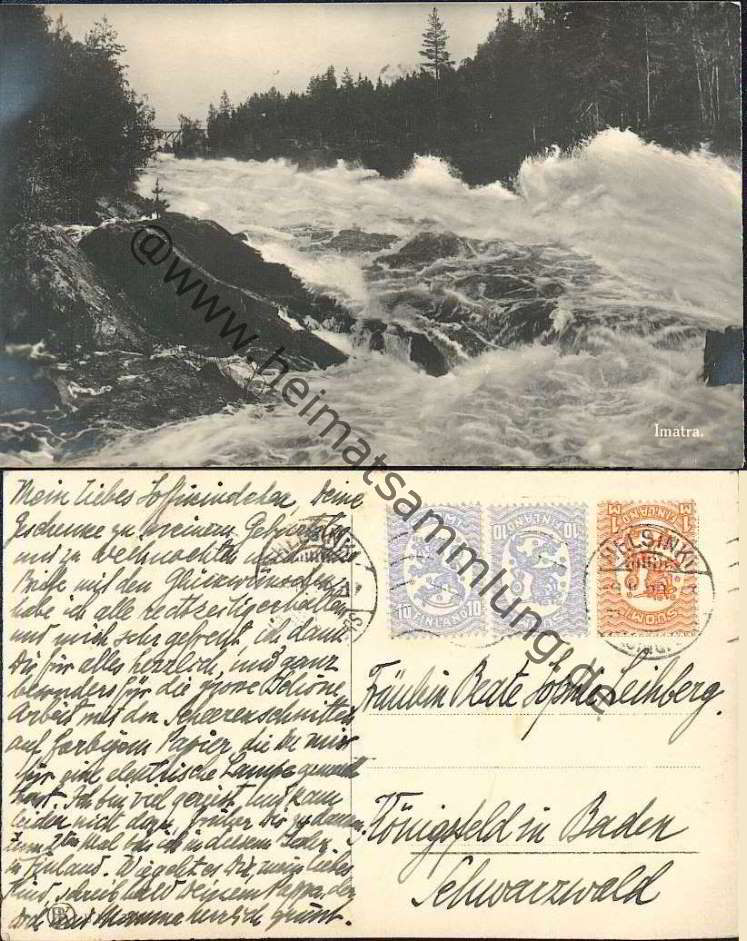 Imatra.
@www.heimatsammlung.de
Mein liebes Soffikindchen, Deine
Geschenke zu meinem Geburtstag
und zu Weihnachten und Deine
Briefe mit den Glückwünschen
habe ich alle rechtzeitig erhalten
und mich sehr gefreut, ich danke
Dir für alles herzlich, und ganz
besonders für die grosse schöne
Arbeit mit den Scheerenschnitten
auf farbigem Papier, die Du mir
für eine elektrische Lampe gemacht
hast. Ich bin viel gereist, und kam
leider nicht dazu, früher Dir zu danken.
Zum 2ten Mal bin ich in diesem
in Finland. Wie geht es Dir, mein liebes
Kind, schreib bald Deinem Pappa, der
Dich und Mamma herzlich grüsst.
HELSINKI
10 FINLAND 10
SUOMI
HELSINKI
SUOMI
Fräulein Beate Sophie Leihberg.
Königsfeld in Baden
Schwarzwald